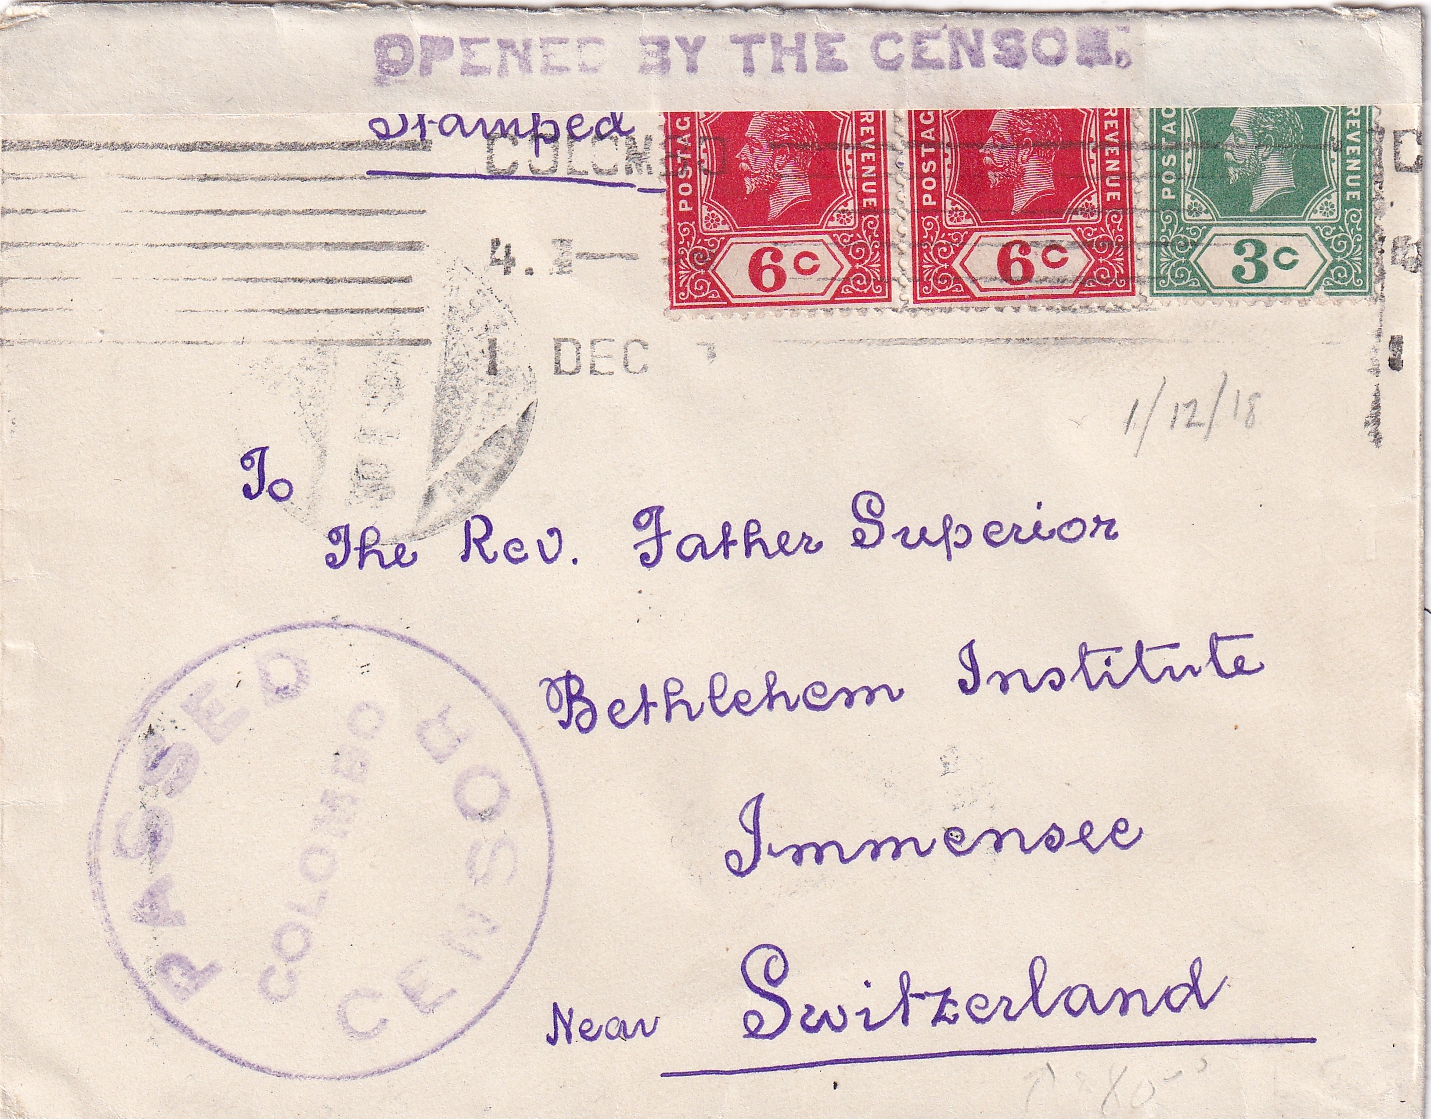 OPENED BY THE CENSOR.
Stamped
COLOMBO
POSTAG REVENUE
6c
POSTAG REVENUE
6c
POSTAG REVENUE
3c
4.
1 DEC
1/12/18
To
The Rev. Father Superior
Bethlehem Institute
Immensee
Near Switzerland
PASSED CENSOR
COLOMBO